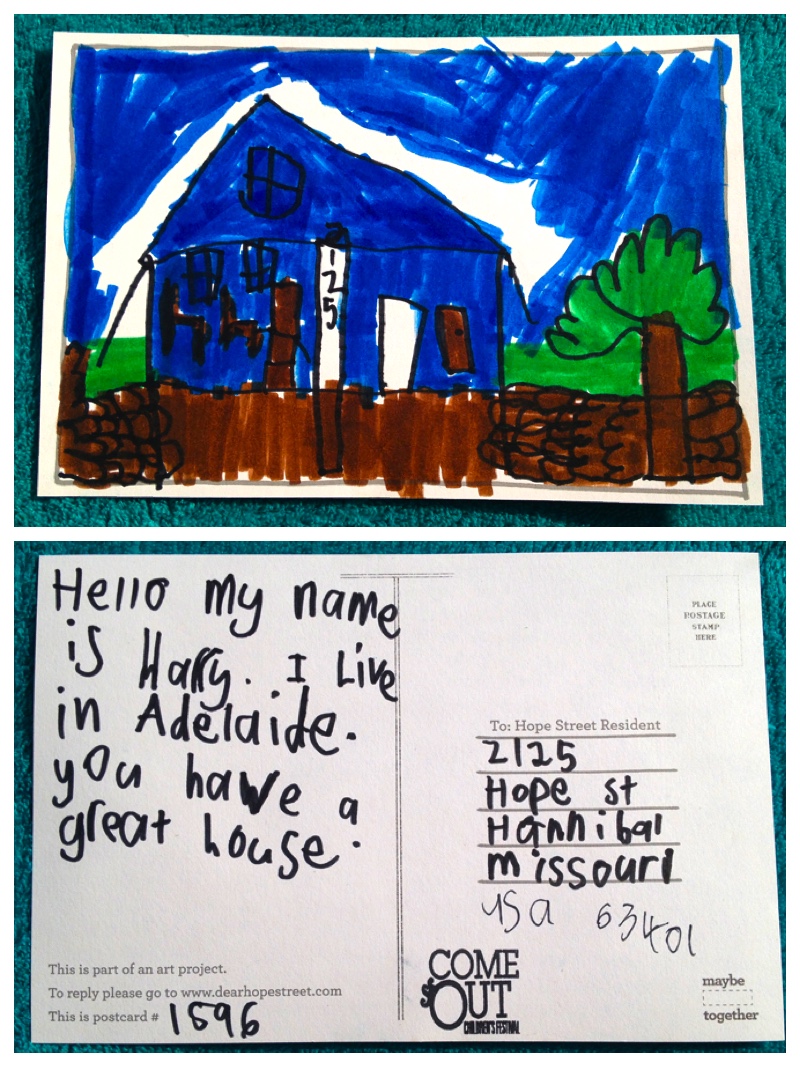 2
1
2
5
Hello my name
is Harry. I Live
in Adelaide.
you have a
great house.
This is part of an art project.
To reply please go to www.dearhopestreet.com
This is postcard # 1596
PLACE
POSTAGE
STAMP
HERE
To: Hope Street Resident
2125
Hope st
Hannibal
missouri
usa 63401
COME
OUT
CHILDREN'S FESTIVAL
maybe
together